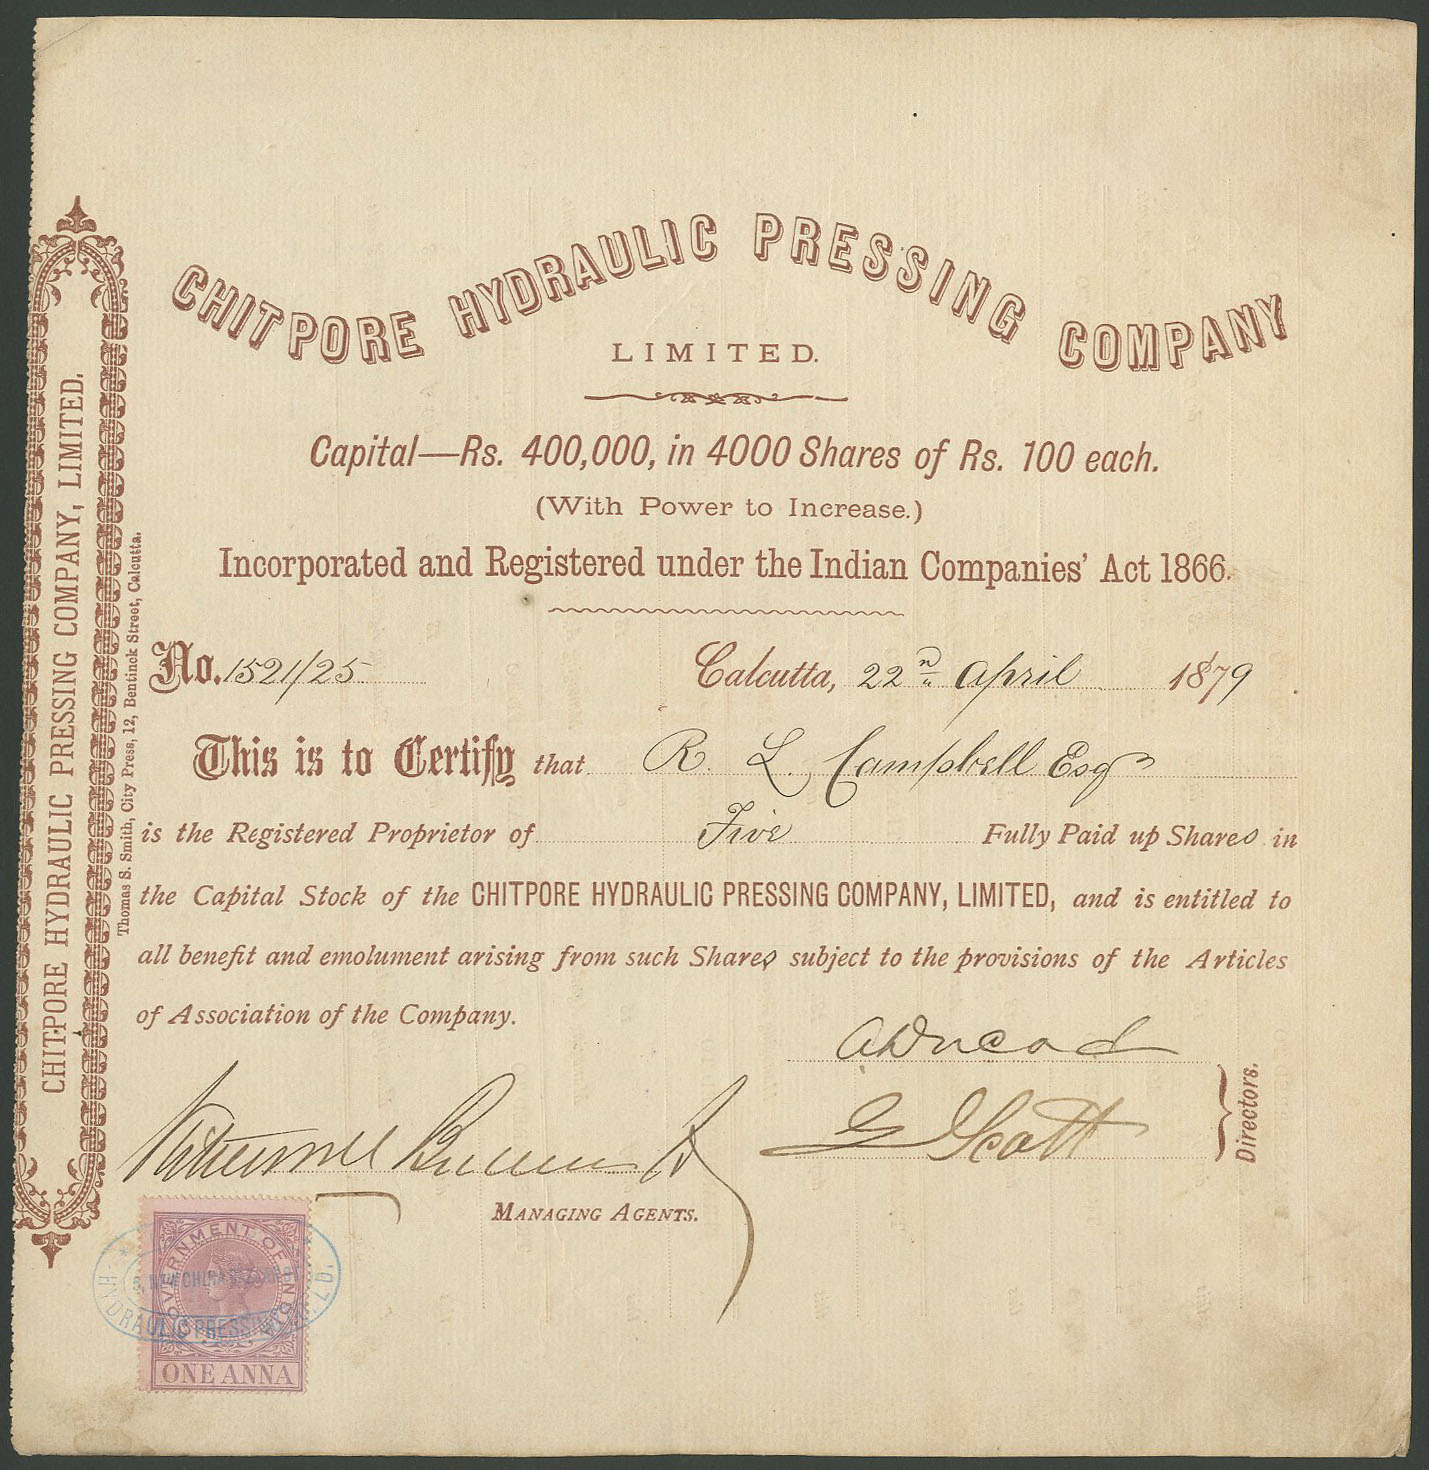 CHITPORE HYDRAULIC PRESSING COMPANY
LIMITED.
Capital—Rs. 400,000, in 4000 Shares of Rs. 100 each.
(With Power to Increase.)
Incorporated and Registered under the Indian Companies' Act 1866.
No. 1521/25 Calcutta, 22nd April 1879
This is to Certify that R. L. Campbell Esqr
is the Registered Proprietor of Five Fully Paid up Shares in
the Capital Stock of the CHITPORE HYDRAULIC PRESSING COMPANY, LIMITED, and is entitled to
all benefit and emolument arising from such Shares subject to the provisions of the Articles
of Association of the Company.
G Scott
Directors.
MANAGING AGENTS.
CHITPORE HYDRAULIC PRESSING COMPANY, LIMITED.
Thomas S. Smith, City Press, 12, Bentinck Street, Calcutta.
GOVERNMENT OF INDIA
ONE ANNA
HYDRAULIC PRESSING LD.